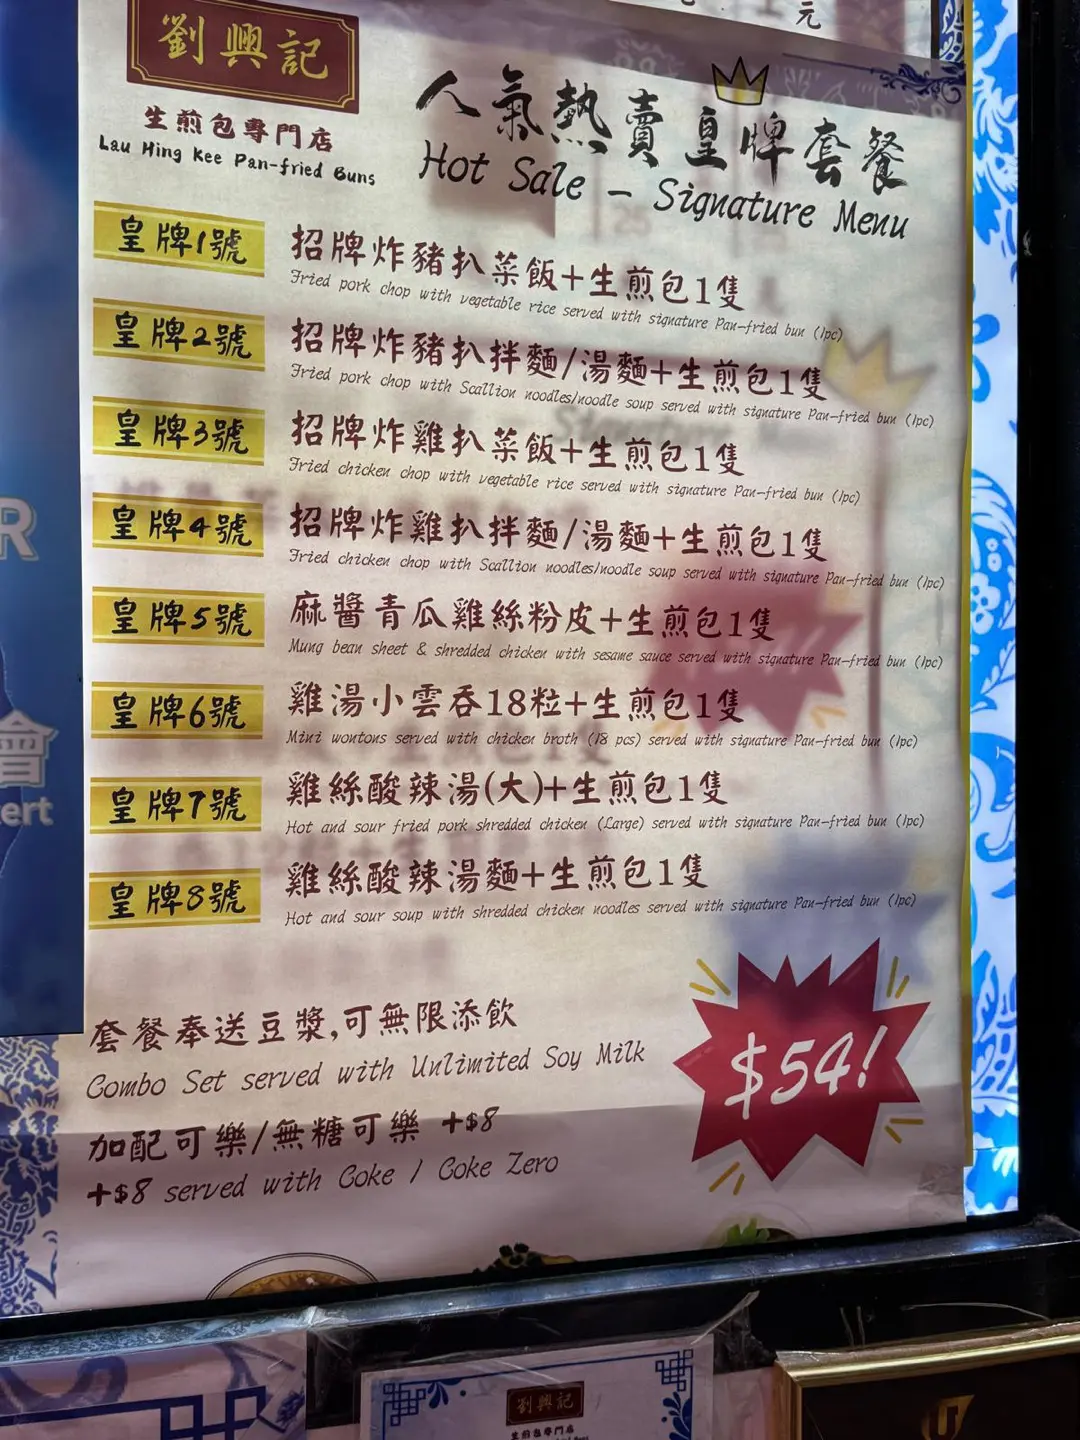 元
劉興記
生煎包專門店
Lau Hing Kee Pan-fried Buns
人氣熱賣皇牌套餐
Hot Sale – Signature Menu
皇牌1號
招牌炸豬扒菜飯+生煎包1隻
Fried pork chop with vegetable rice served with signature Pan-fried bun (1pc)
皇牌2號
招牌炸豬扒拌麵/湯麵+生煎包1隻
Fried pork chop with Scallion noodles/noodle soup served with signature Pan-fried bun (1pc)
皇牌3號
招牌炸雞扒菜飯+生煎包1隻
Fried chicken chop with vegetable rice served with signature Pan-fried bun (1pc)
皇牌4號
招牌炸雞扒拌麵/湯麵+生煎包1隻
Fried chicken chop with Scallion noodles/noodle soup served with signature Pan-fried bun (1pc)
皇牌5號
麻醬青瓜雞絲粉皮+生煎包1隻
Mung bean sheet & shredded chicken with sesame sauce served with signature Pan-fried bun (1pc)
皇牌6號
雞湯小雲吞18粒+生煎包1隻
Mini wontons served with chicken broth (18 pcs) served with signature Pan-fried bun (1pc)
皇牌7號
雞絲酸辣湯(大)+生煎包1隻
Hot and sour fried pork shredded chicken (Large) served with signature Pan-fried bun (1pc)
皇牌8號
雞絲酸辣湯麵+生煎包1隻
Hot and sour soup with shredded chicken noodles served with signature Pan-fried bun (1pc)
套餐奉送豆漿,可無限添飲
Combo Set served with Unlimited Soy Milk
$54!
加配可樂/無糖可樂 +$8
+$8 served with Coke / Coke Zero
R
會
ert
劉興記
生煎包專門店